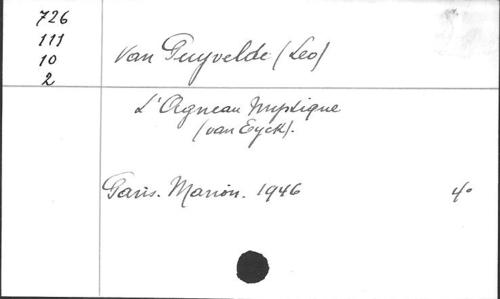 726
111
10
2
Van Puyvelde (Leo)
L'Agneau Mystique
(van Eyck).
Paris. Marion. 1946 4°